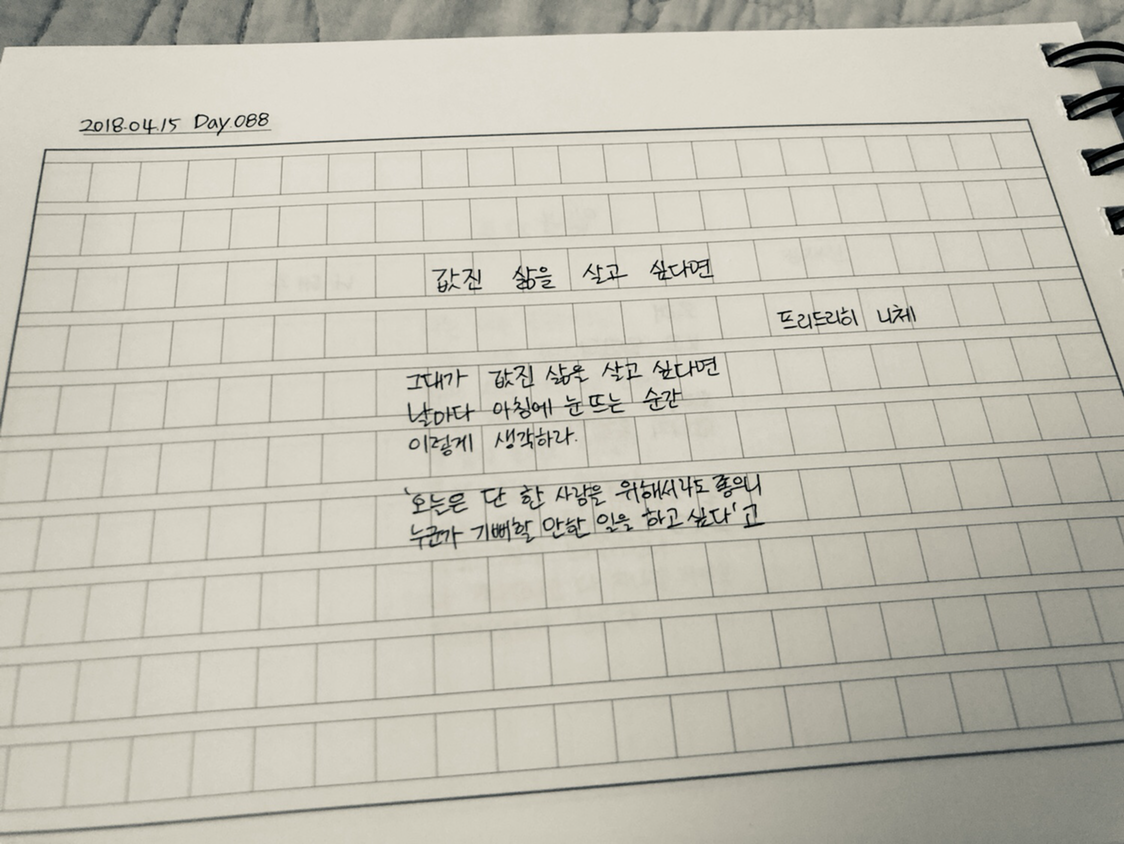 2018.04.15 Day.088
값진 삶을 살고 싶다면
프리드리히 니체
그대가 값진 삶을 살고 싶다면
날마다 아침에 눈뜨는 순간
이렇게 생각하라.
'오늘은 단 한 사람을 위해서라도 좋으니
누군가 기뻐할 만한 일을 하고 싶다'고